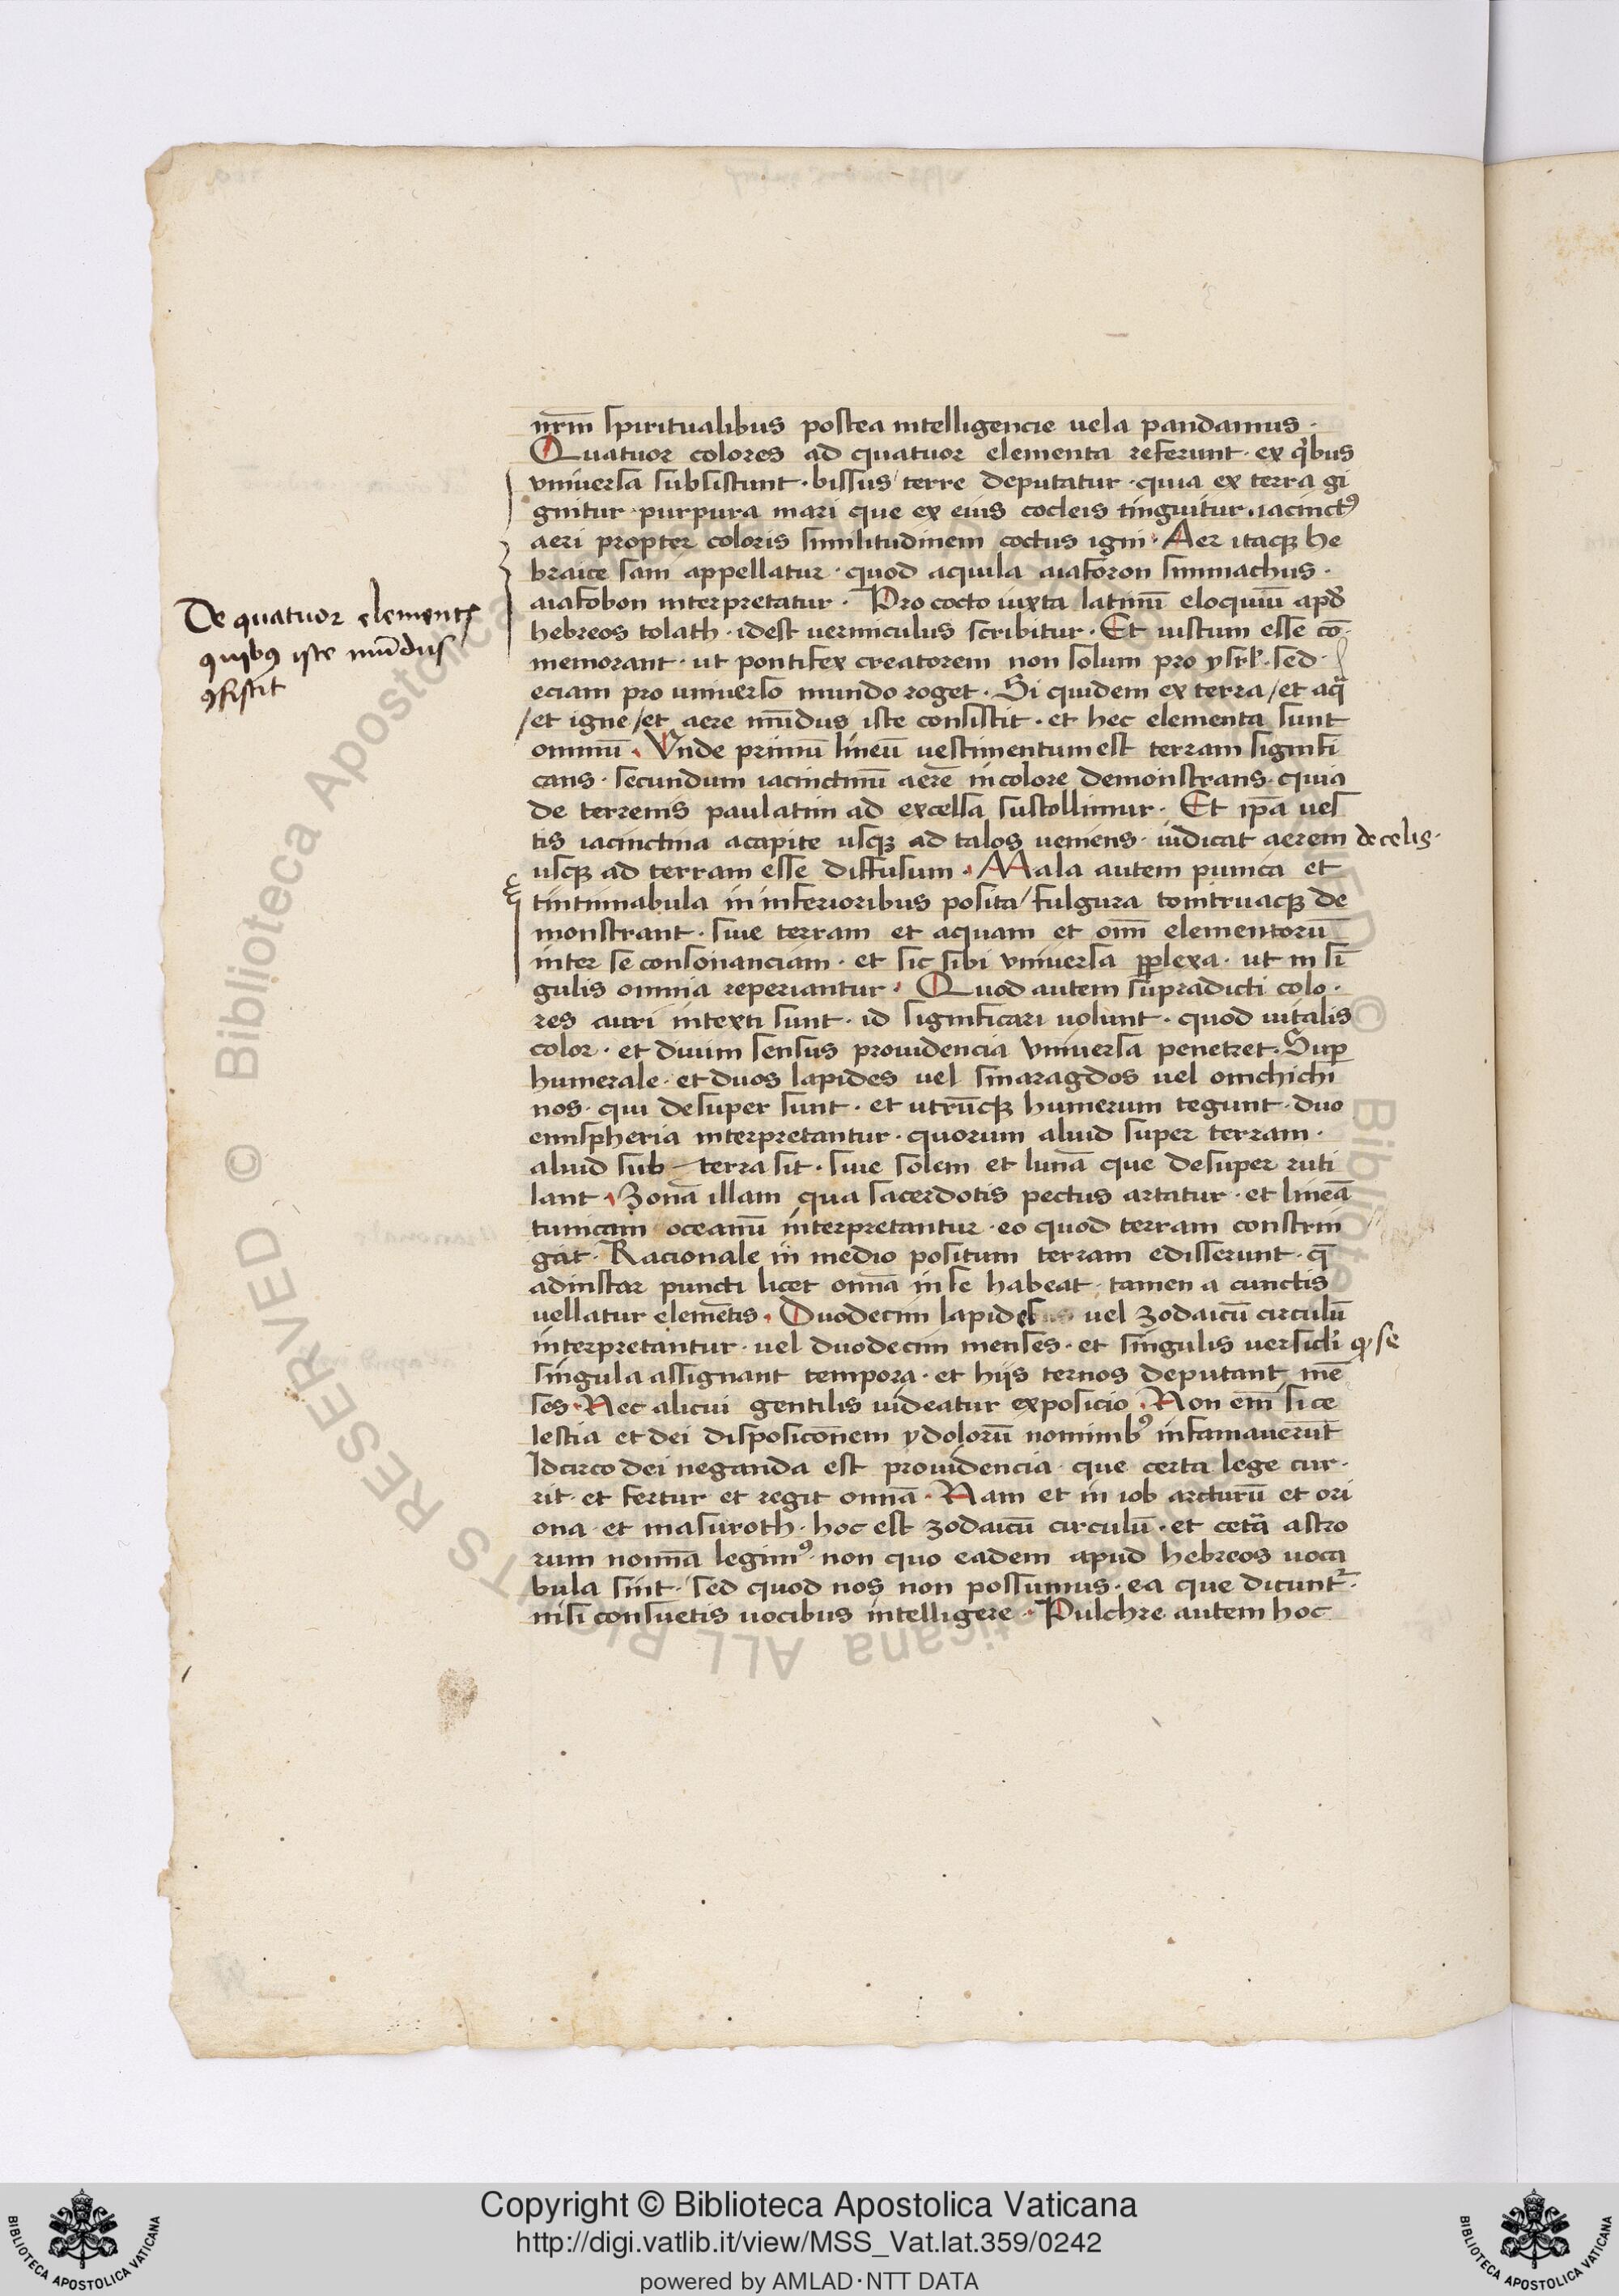 nr̄m spiritualibus postea intelligencie uela pandamus ·
Quatuor colores ad quatuor elementa referunt · ex qͥbus
vniuersa subsistunt · bissus / terre deputatur · quia ex terra gi
gnitur · purpura mari que ex eius cocleis tinguitur · iacinctꝰ
aeri propter coloris similitudinem coctus igni · Aer itaqꝫ he
braice sam appellatur · quod aquila aiaforon simmachus ·
aiafobon interpretatur · Pro cocto iuxta latinū eloquiū apđ
hebreos tolath · idest uermiculus scribitur · Et iustum esse cō
memorant · ut pontifex creatorem non solum pro ysrl̄ · sed ·
eciam pro uniuerso mundo roget · Si quidem ex terra / et aq̄
/ et igne / et aere mūdus iste consistit · et hec elementa sunt
omniū · Vnde primū lineū uestimentum est terram signifi
cans · secundum iacinctinū aerē in colore demonstrans · quia
de terrenis paulatim ad excelsa sustollimur · Et ip̄a ues
tis iacinctina acapite usqꝫ ad talos ueniens · iudicat aerem de celis ·
usqꝫ ad terram esse diffusum · Mala autem punica et
tintinnabula in inferioribus posita / fulgura tonitruaqꝫ de
monstrant · siue terram et aquam et oīm elementorū
inter se consonanciam · et sic sibi vniuersa ꝑplexa · ut in sī
gulis omnia reperiantur · Quod autem supradicti colo ·
res auri intexti sunt · id significari uolunt · quod uitalis
color · et diuini sensus prouidencia vniuersa penetret · Suꝑ
humerale · et duos lapides uel smaragdos uel onichichi
nos · qui desuper sunt · et utrūqꝫ humerum tegunt · duo
emispheria interpretantur · quorum aluid super terram ·
aluid sub terra sit · siue solem et lunā que desuper ruti
lant · Zonā illam qua sacerdotis pectus artatur · et lineā
tunicam oceanū interpretantur · eo quod terram constrin
gat · Racionale in medio positum terram edisserunt · q̄
adinstar puncti licet omīa in se habeat · tamen a cunctis
vellatur elemētis · Duodecim lapides uel zodaicū circulū
interpretantur · uel duodecim menses · et singulis uersiclͥ qͦ se
singula assignant tempora · et hijs ternos deputant mē
ses · Nec alicui gentilis uideatur exposicio · Non em̄ si ce
lestia et dei disposicōnem ydolorū nominibꝰ infamauerūt
Idcirco dei neganda est prouidencia · que certa lege cur ·
rit · et fertur et regit omīa · Nam et in iob arcturū et ori
ona · et masuroth · hoc est zodaicū circulū · et cetā astro
rum nomīa legimꝰ · non quo eadem apud hebreos uoca
bula sint · sed quod nos non possumus · ea que dicuntᷣ ·
nisi consuetis uocibus intelligere · Pulchre autem hoc
De quatuor elementꝭ
quibꝰ iste mūdus
ꝯsistit
Copyright © Biblioteca Apostolica Vaticana
http://digi.vatlib.it/view/MSS_Vat.lat.359/0242
powered by AMLAD·NTT DATA
BIBLIOTECA APOSTOLICA VATICANA
BIBLIOTECA APOSTOLICA VATICANA